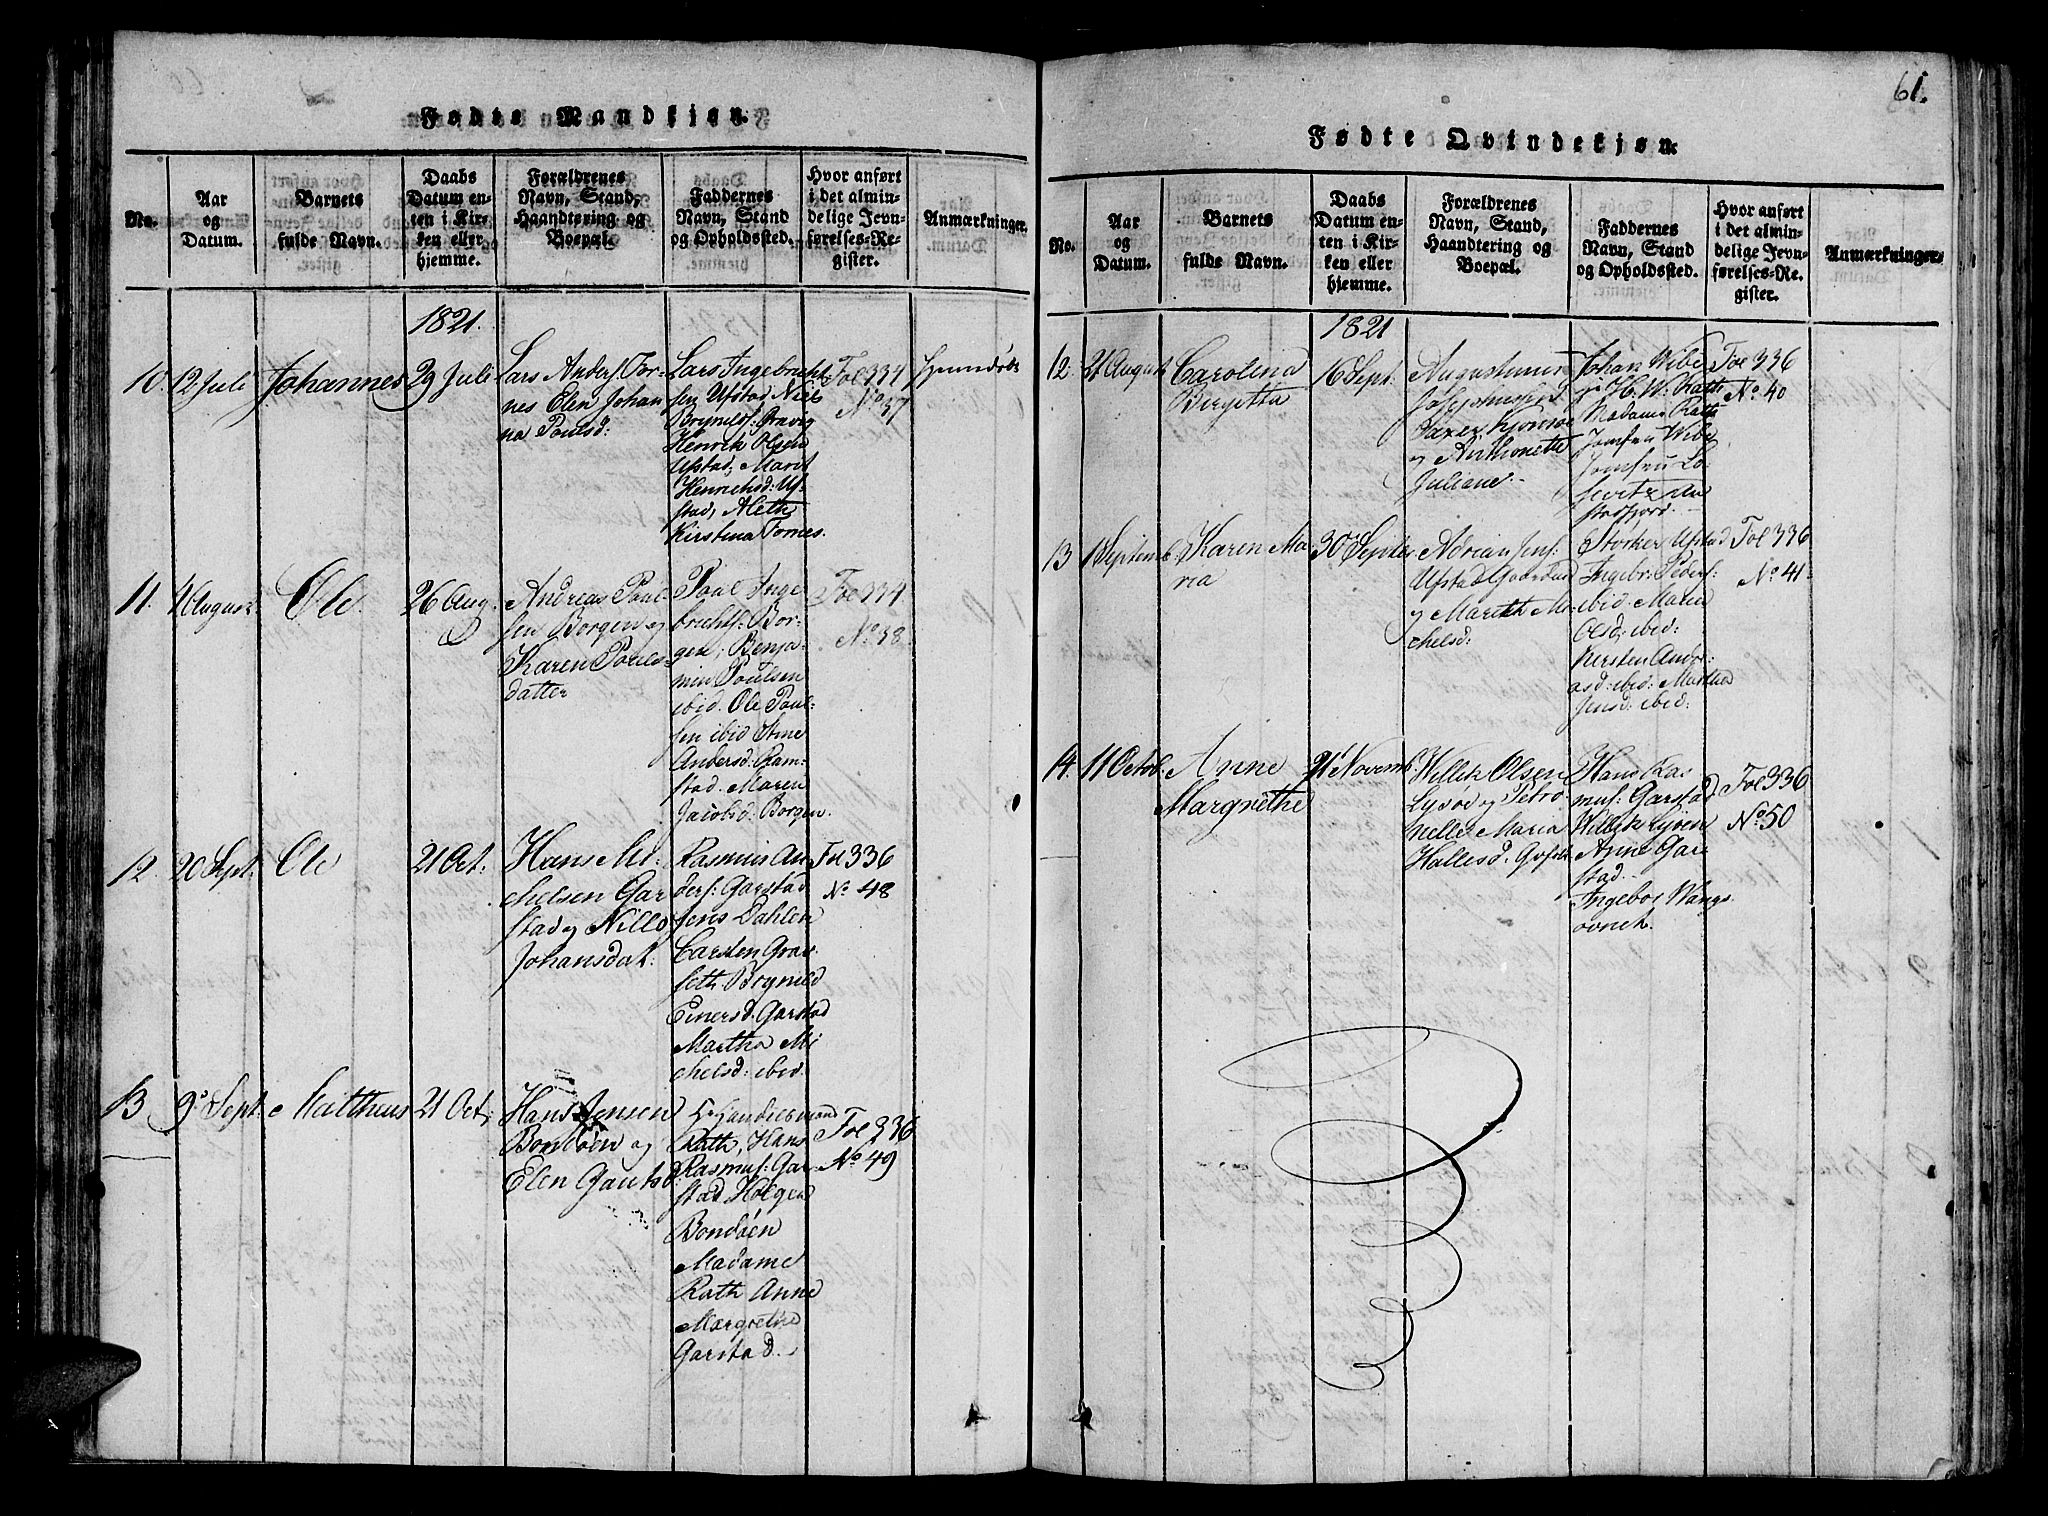 Fødte Mandkjøn.
No.
Aar
og
Datum.
Barnets
fulde Navn.
Daabs
Datum en-
ten i Kir-
ken eller
hjemme.
Forældrenes
Navn, Stand,
Haandtering og
Boepæl.
Faddernes
Navn, Stand
og Opholdssted.
Hvor anført
i det almin-
delige Jevn-
førelses-Re-
gister.
Anmærkninger.
1821.
10.
12 Juli
Johannes
29 Juli
Lars Anders Tor-
nes Elen Johan
na Pouls d:
Lars Ingebricht
sen Ufstad Niels
Brynilds: Gravig
Henrik Olsen
Ufstad, Marit
Henrichsd: Uf-
stad, Aleth
Kirstina Tornes.
Fol 334
No 37
Hjemdøbt
11.
August
Ole.
26 Aug.
Andreas Poul-
sen Borgen og
Karen Pouls-
datter
Poul Inge
brichts: Bor-
gen, Benja-
min Poulsen
ibid. Ole Poul-
sen ibid Stine
Andersd: Ram-
stad. Maren
Jacobsd: Borgen.
Fol 334
No 38.
12.
20 Sept:
Ole
21 Oct:
Hans Mi-
chelsen Gar
stad og Nille
Johansdat:
Rasmus An
ders: Garstad
Jens Dahlen
Carsten Grav
seth Brynild
Einersd. Garstad
Martha Mi
chelsd: ibid.
Fol 336
No 48
13
9 Sept.
Mattheus
21 Oct:
Hans Jensen
Bondøen og
Elen Gautsd
Hr Handelsmand
Rath, Hans
Rasmus: Gar-
stad Holgen
Bondøen
Madame
Rath Anne
Margrethe
Garstad.
Fol 336
No 49
61.
Fødte Qvindekjøn.
No.
Aar
og
Datum.
Barnets
fulde Navn.
Daabs
Datum en-
ten i Kir-
ken eller
hjemme.
Forældrenes
Navn, Stand,
Haandtering og
Boepæl.
Faddernes
Navn, Stand
og Opholdssted.
Hvor anført
i det almin-
delige Jevn-
førelses-Re-
gister.
Anmærkninger.
1821
12.
21 August
Carolina
Birgitta
16 Sept:
Augustinus
og Anthonette
Juliane
Johan Wibe
H. W. Rath
Madame Rath
Jomfru Wibe
Jomfru
Fol 336
No 40
13
1 Septemb.
Karen Ma
ria
30 Septer.
Adrian Jens:
Ufstad
og Marith Mi-
chelsd:
Storker Ufstad
Ingebr: Peders:
ibid. Maren
Olsd: ibid:
Kirsten Andr-
asd: ibid: Martha
Jensd: ibid:
Fol 336
No 41.
14.
11 Octob.
Anne
Margrethe
21 Novemb.
Willik Olsen
Lysøe og Petro
nelle Maria
Hallesd.
Hans Ras
mus: Garstad
Willik Lyøen
Anne Gar-
stad
Ingebor Wangs
ovnet.
Fol 336
No 50